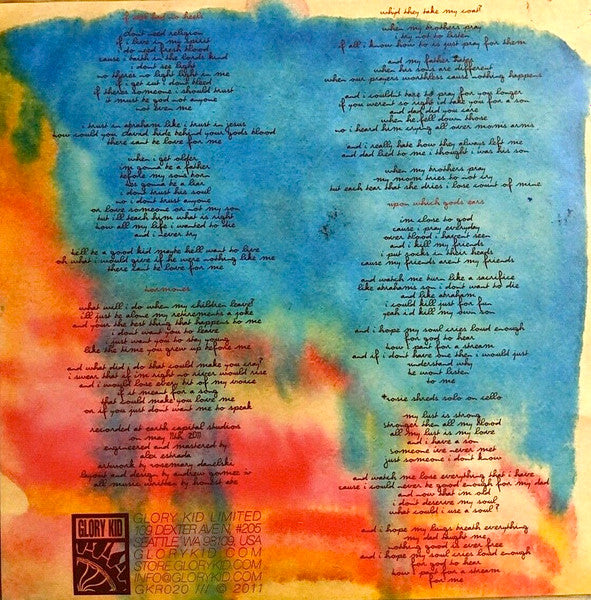 if god had ur heels
i dont need religion
if i live in my spirit
i do need fresh blood
cause i faith in the lords kind
i dont see light
no theres no light light in me
if i get cut i dont bleed
if theres someone i should trust
it must be god not anyone
not even me
i trust in abraham like i trust in jesus
how could you david hide behind your gods blood
there cant be love for me
when i get older
im gonna be a father
before my sons born
hes gonna be a liar
i dont trust his soul
no i dont trust anyone
or love someone or not my son
but ill teach him what is right
how all my life i wanted to die
and i never try
tell te a good kid maybe hell want to live
oh what i would give if he were nothing like me
there cant be love for me
hormones
what will i do when my children leave?
ill just be alone my retirements a joke
and your the best thing that happens to me
i dont want you to leave
just want you to stay young
like the time you grew up before me
and what did i do that could make you cry?
i swear that if im right no river would rise
and i would lose every bit of my voice
if it meant for a song
that could make you love me
or if you just dont want me to speak
recorded at earth capital studios
on may 15th 2011
engineered and mastered by
alex estrada
artwork by rosemary danielski
layout and design by andrew gomez iv
all music written by honest abe
GLORY KID
GLORY KID LIMITED
119 DEXTER AVE N. #205
SEATTLE, WA 98109, USA
GLORYKID.COM
STORE.GLORYKID.COM
INFO@GLORYKID.COM
GKR020 /// © 2011
whyd they take my coat?
when my brothers pray
i try not to listen
if all i know how to is just pray for them
and my father hates
when his sons are different
when our prayers worthless cause nothing happens
and i couldnt take to pray for you longer
if you werent so right id take you for a son
and dad did you care
when he fell down those
no i heard him crying all over moms arms
and i really hate how they always left me
and dad lied to me i thought i was his son
when my brothers pray
my mom tries to not cry
but each tear that she dries i lose count of mine
upon which gods ears
im close to god
cause i pray everyday
over blood i havent seen
and i kill my friends
i put socks in their heads
cause my friends arent my friends
and watch me turn like a sacrifice
like abrahams son i dont want to die
and like abraham
i could kill just for fun
yeah id kill my own son
and i hope my soul cries loud enough
for god to hear
how i pant for a stream
and if i dont have one then i would just
understand why
he wont listen
to me
*rosie shreds solo on cello
my lust is strong
stronger then all my blood
all my lust is my love
and i have a son
someone ive never met
just someone i dont know
and watch me lose everything that i have
cause i could never be good enough for my dad
and now that im old
i dont deserve my soul
what could i use a soul?
and i hope my lungs breath everything
my dad taught me
nothing good is ever free
and i hope my soul cries loud enough
for god to hear
how i pant for a stream
for me